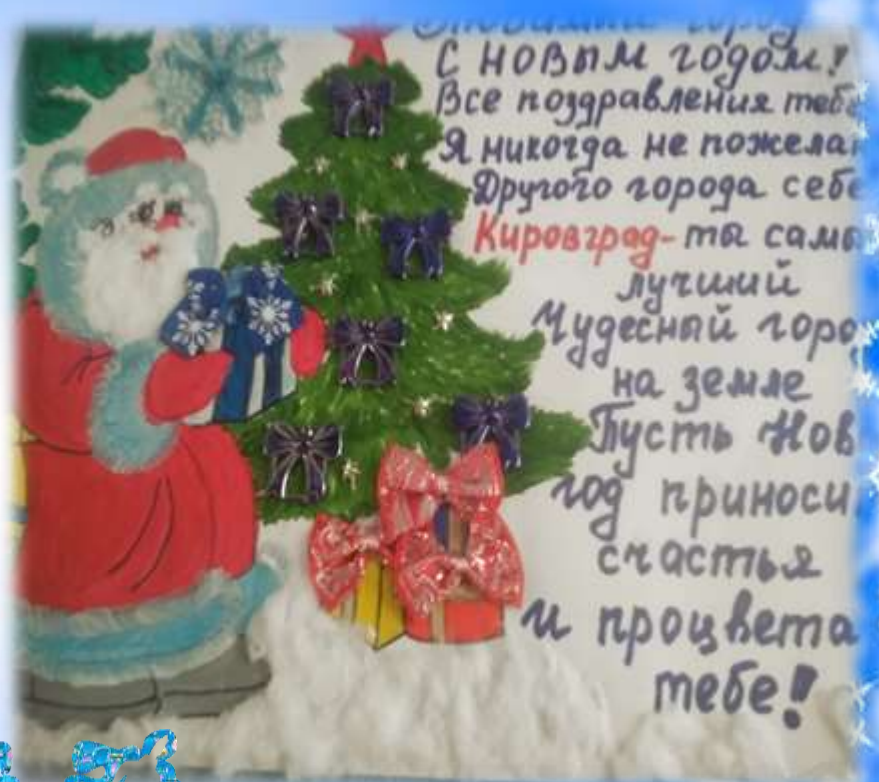 С новым годом!
Все поздравления теб
Я никогда не пожела
Другого города себе
Кировград - ты самы
лучший
Чудесный горо
на земле
Пусть Нов
год приноси
счастья
и процвета
тебе!